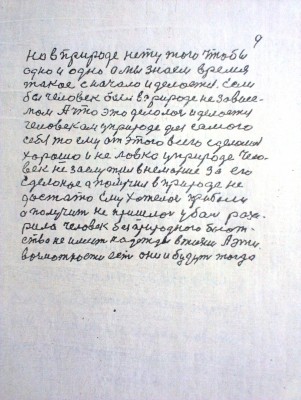 9
но в природе нету того чтобы
одно и одно а мы знаем время
такое сначало и делается. Если
бы человек был в природе не зависе-
мом А то это делалос и делается
человеком и природе для самого
себя то ему от этого всего сделаного
хорошо и не ловко и природе Чело-
век не заслужил внемание За его
сделоное а получил в природе не
достатки Ему хотелос прибыли
а получит не пришлос убал раз-
человек без природного
не имеит надежды в жизни А эти
возможности есть они и будут тогда